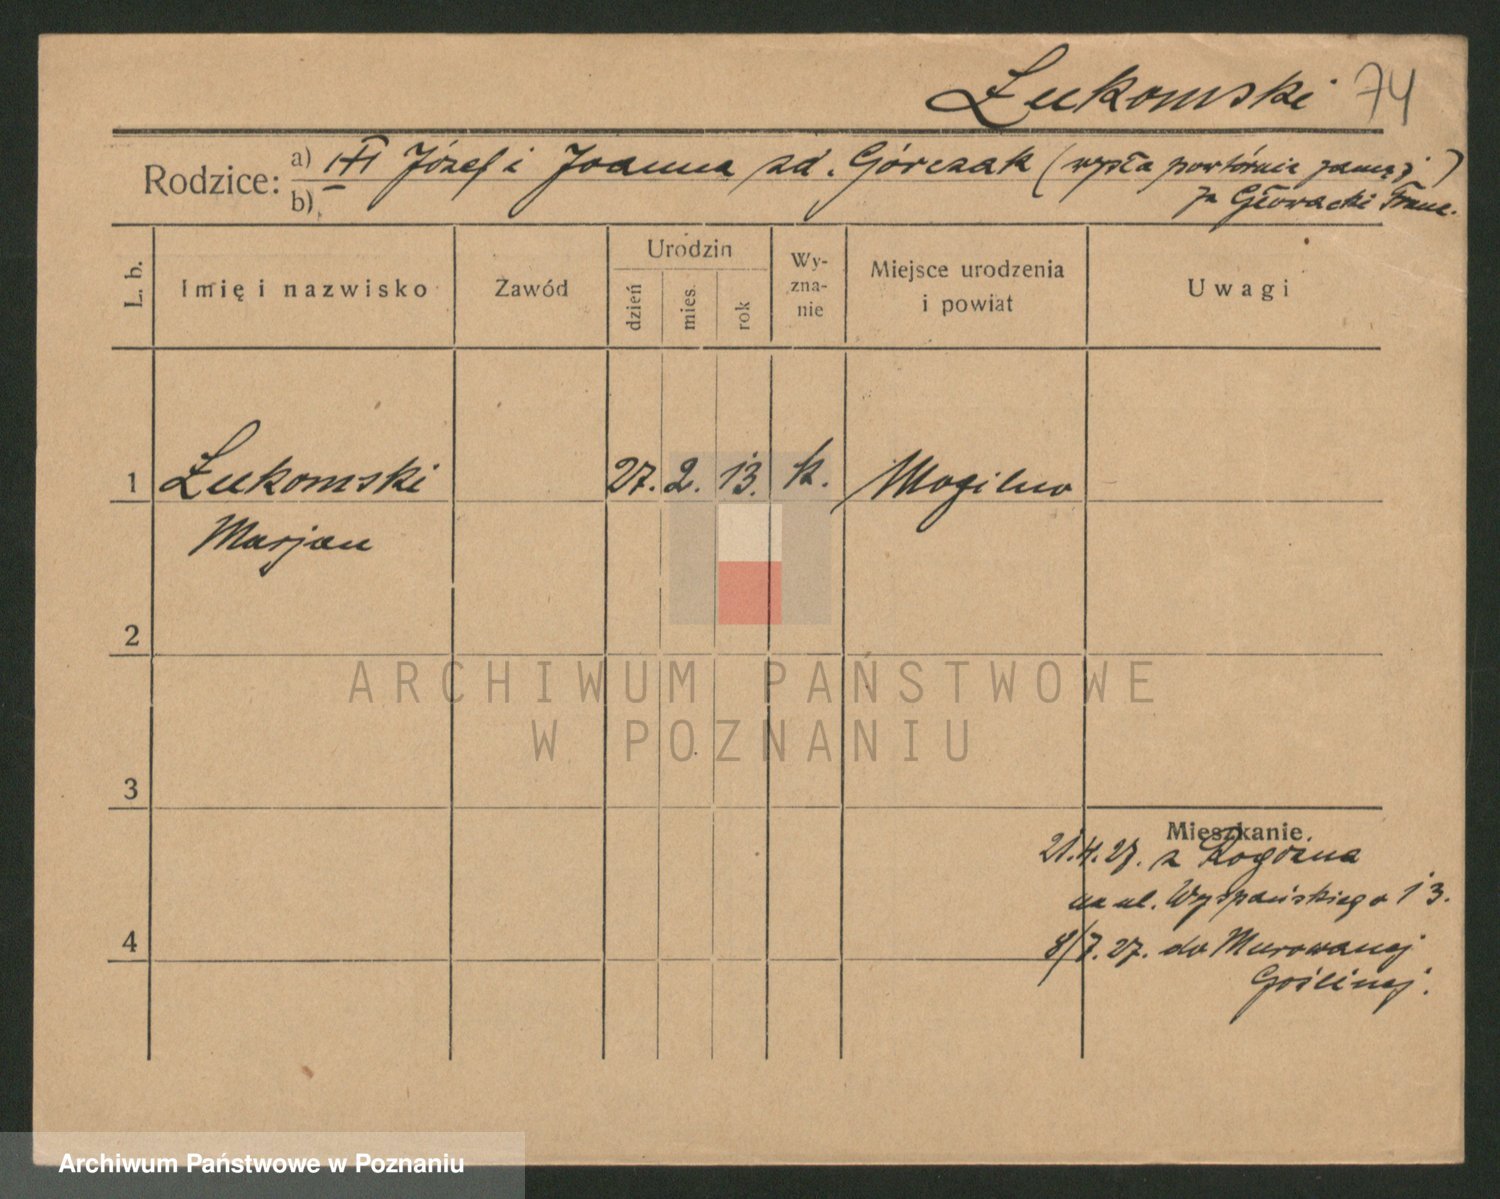 Łukomski 74
Rodzice: a) Józef i Joanna zd. Górczak (wyszła powtórnie zamąż)
b) za Głowacki Franc.
L. b.
Imię i nazwisko
Zawód
Urodzin
dzień
mies.
rok
Wy-
zna-
nie
Miejsce urodzenia
i powiat
Uwagi
1 Łukomski 27. 2. 13. k. Mogilno
Marjan
2
ARCHIWUM PAŃSTWOWE
W POZNANIU
3
Mieszkanie.
21.4.27. z Rogoźna
na ul. Wyspiańskiego 13.
4 8/7.27. do Murowanej
Goślinej.
Archiwum Państwowe w Poznaniu